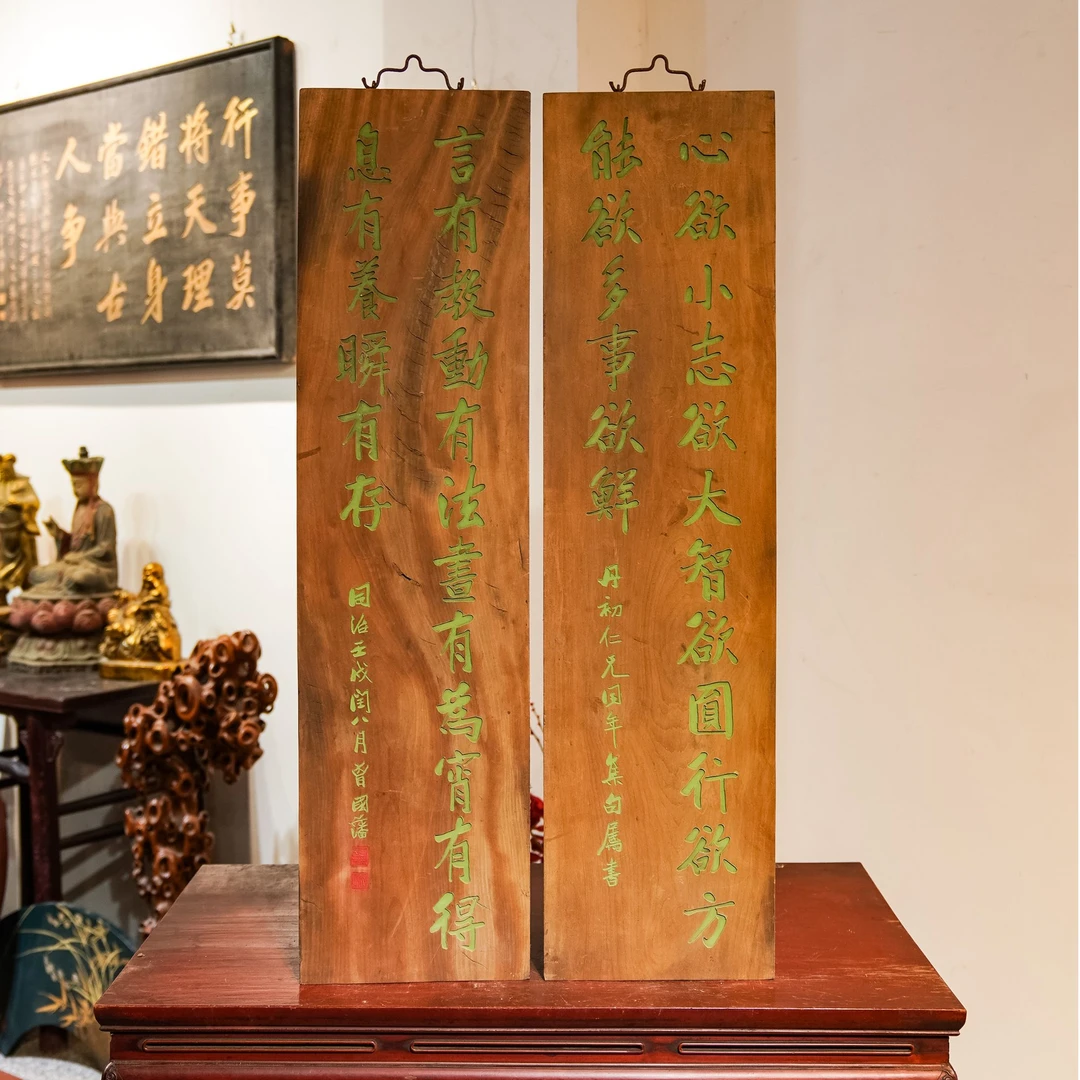 心欲小志欲大智欲圓行欲方
能欲多事欲鮮
丹初仁兄同年集句屬書
言有教動有法晝有為宵有得
息有養瞬有存
同治壬戌閏八月曾國藩
行事莫
將天理
錯立身
當與古
人爭